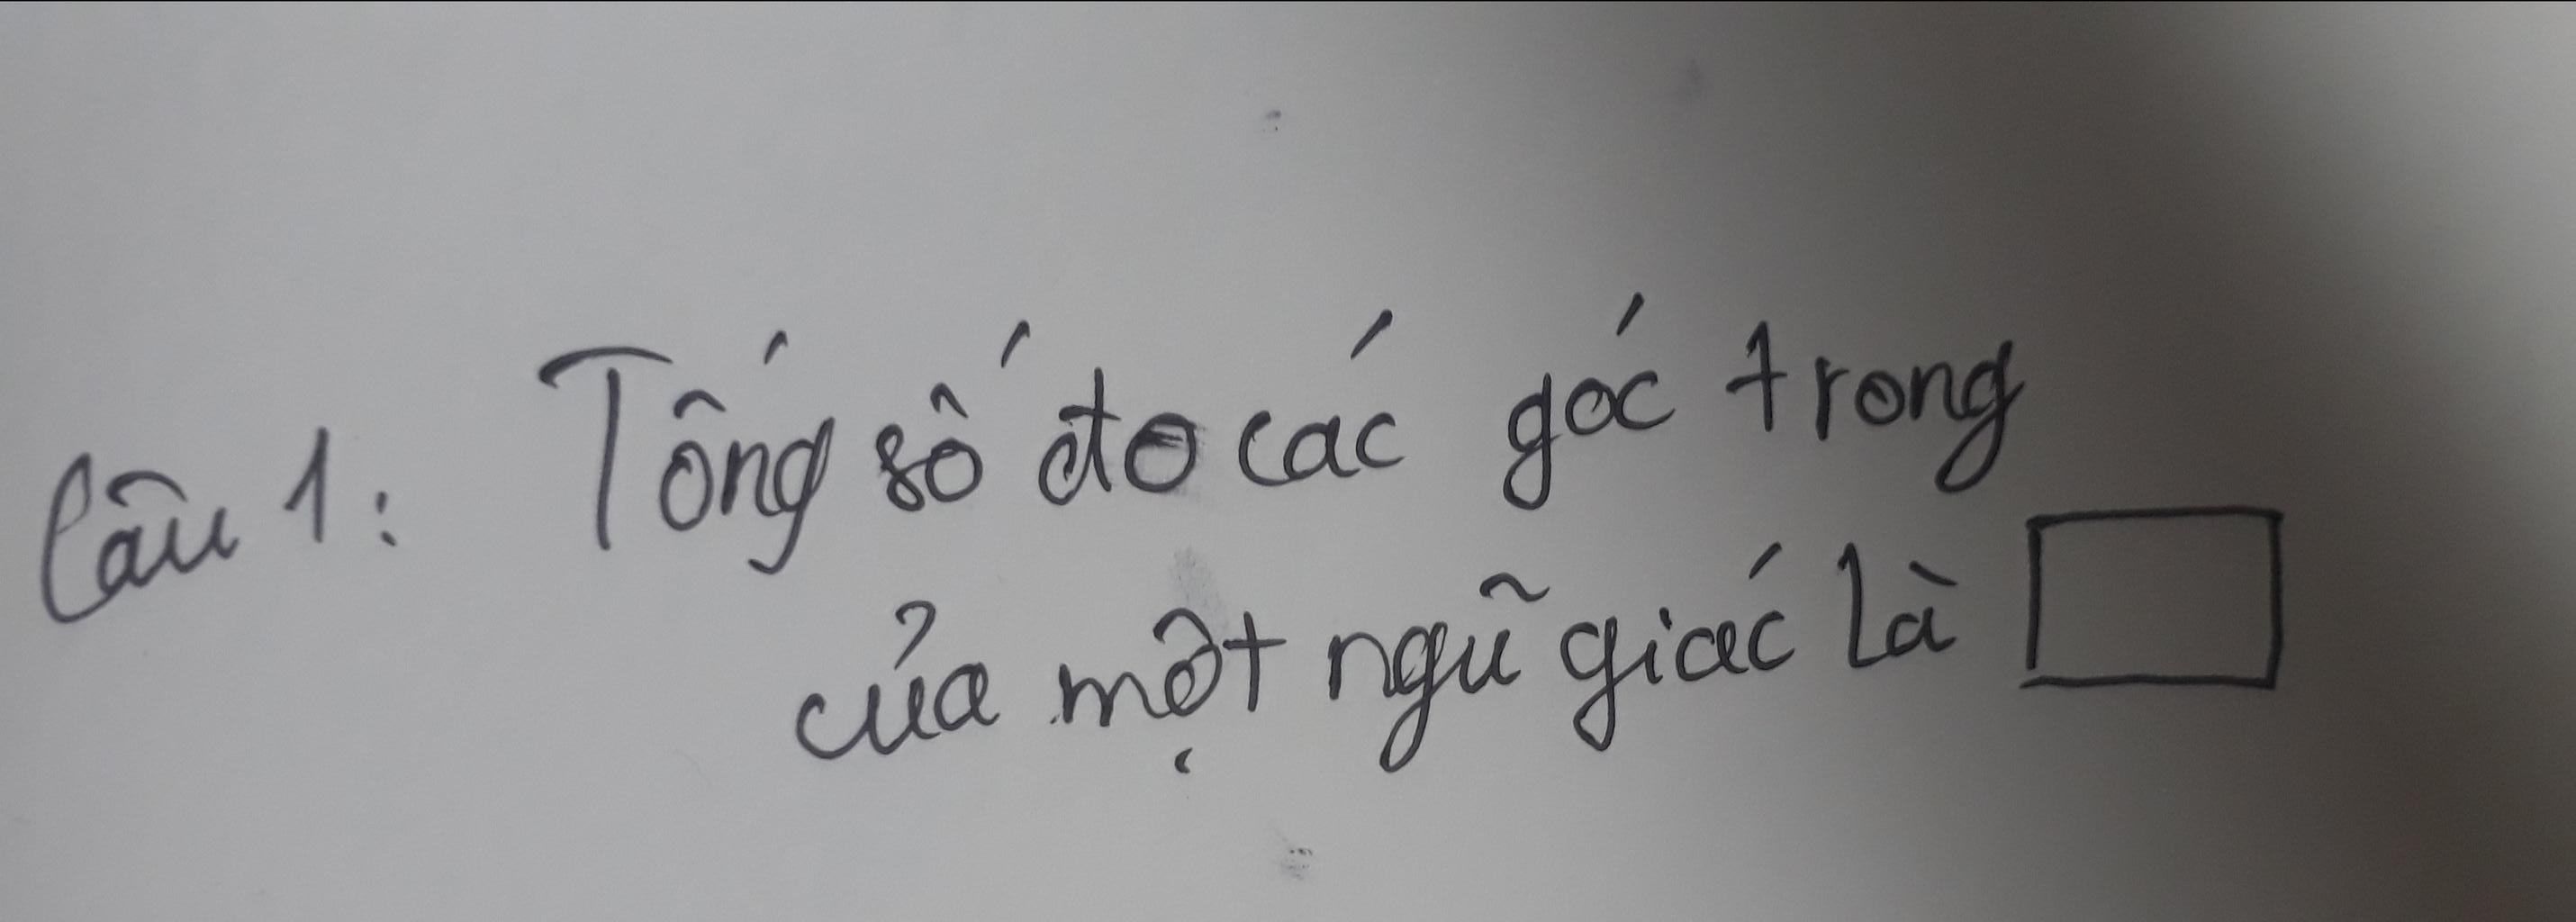 Câu 1: Tống số đo các góc trong
của một ngũ giác là